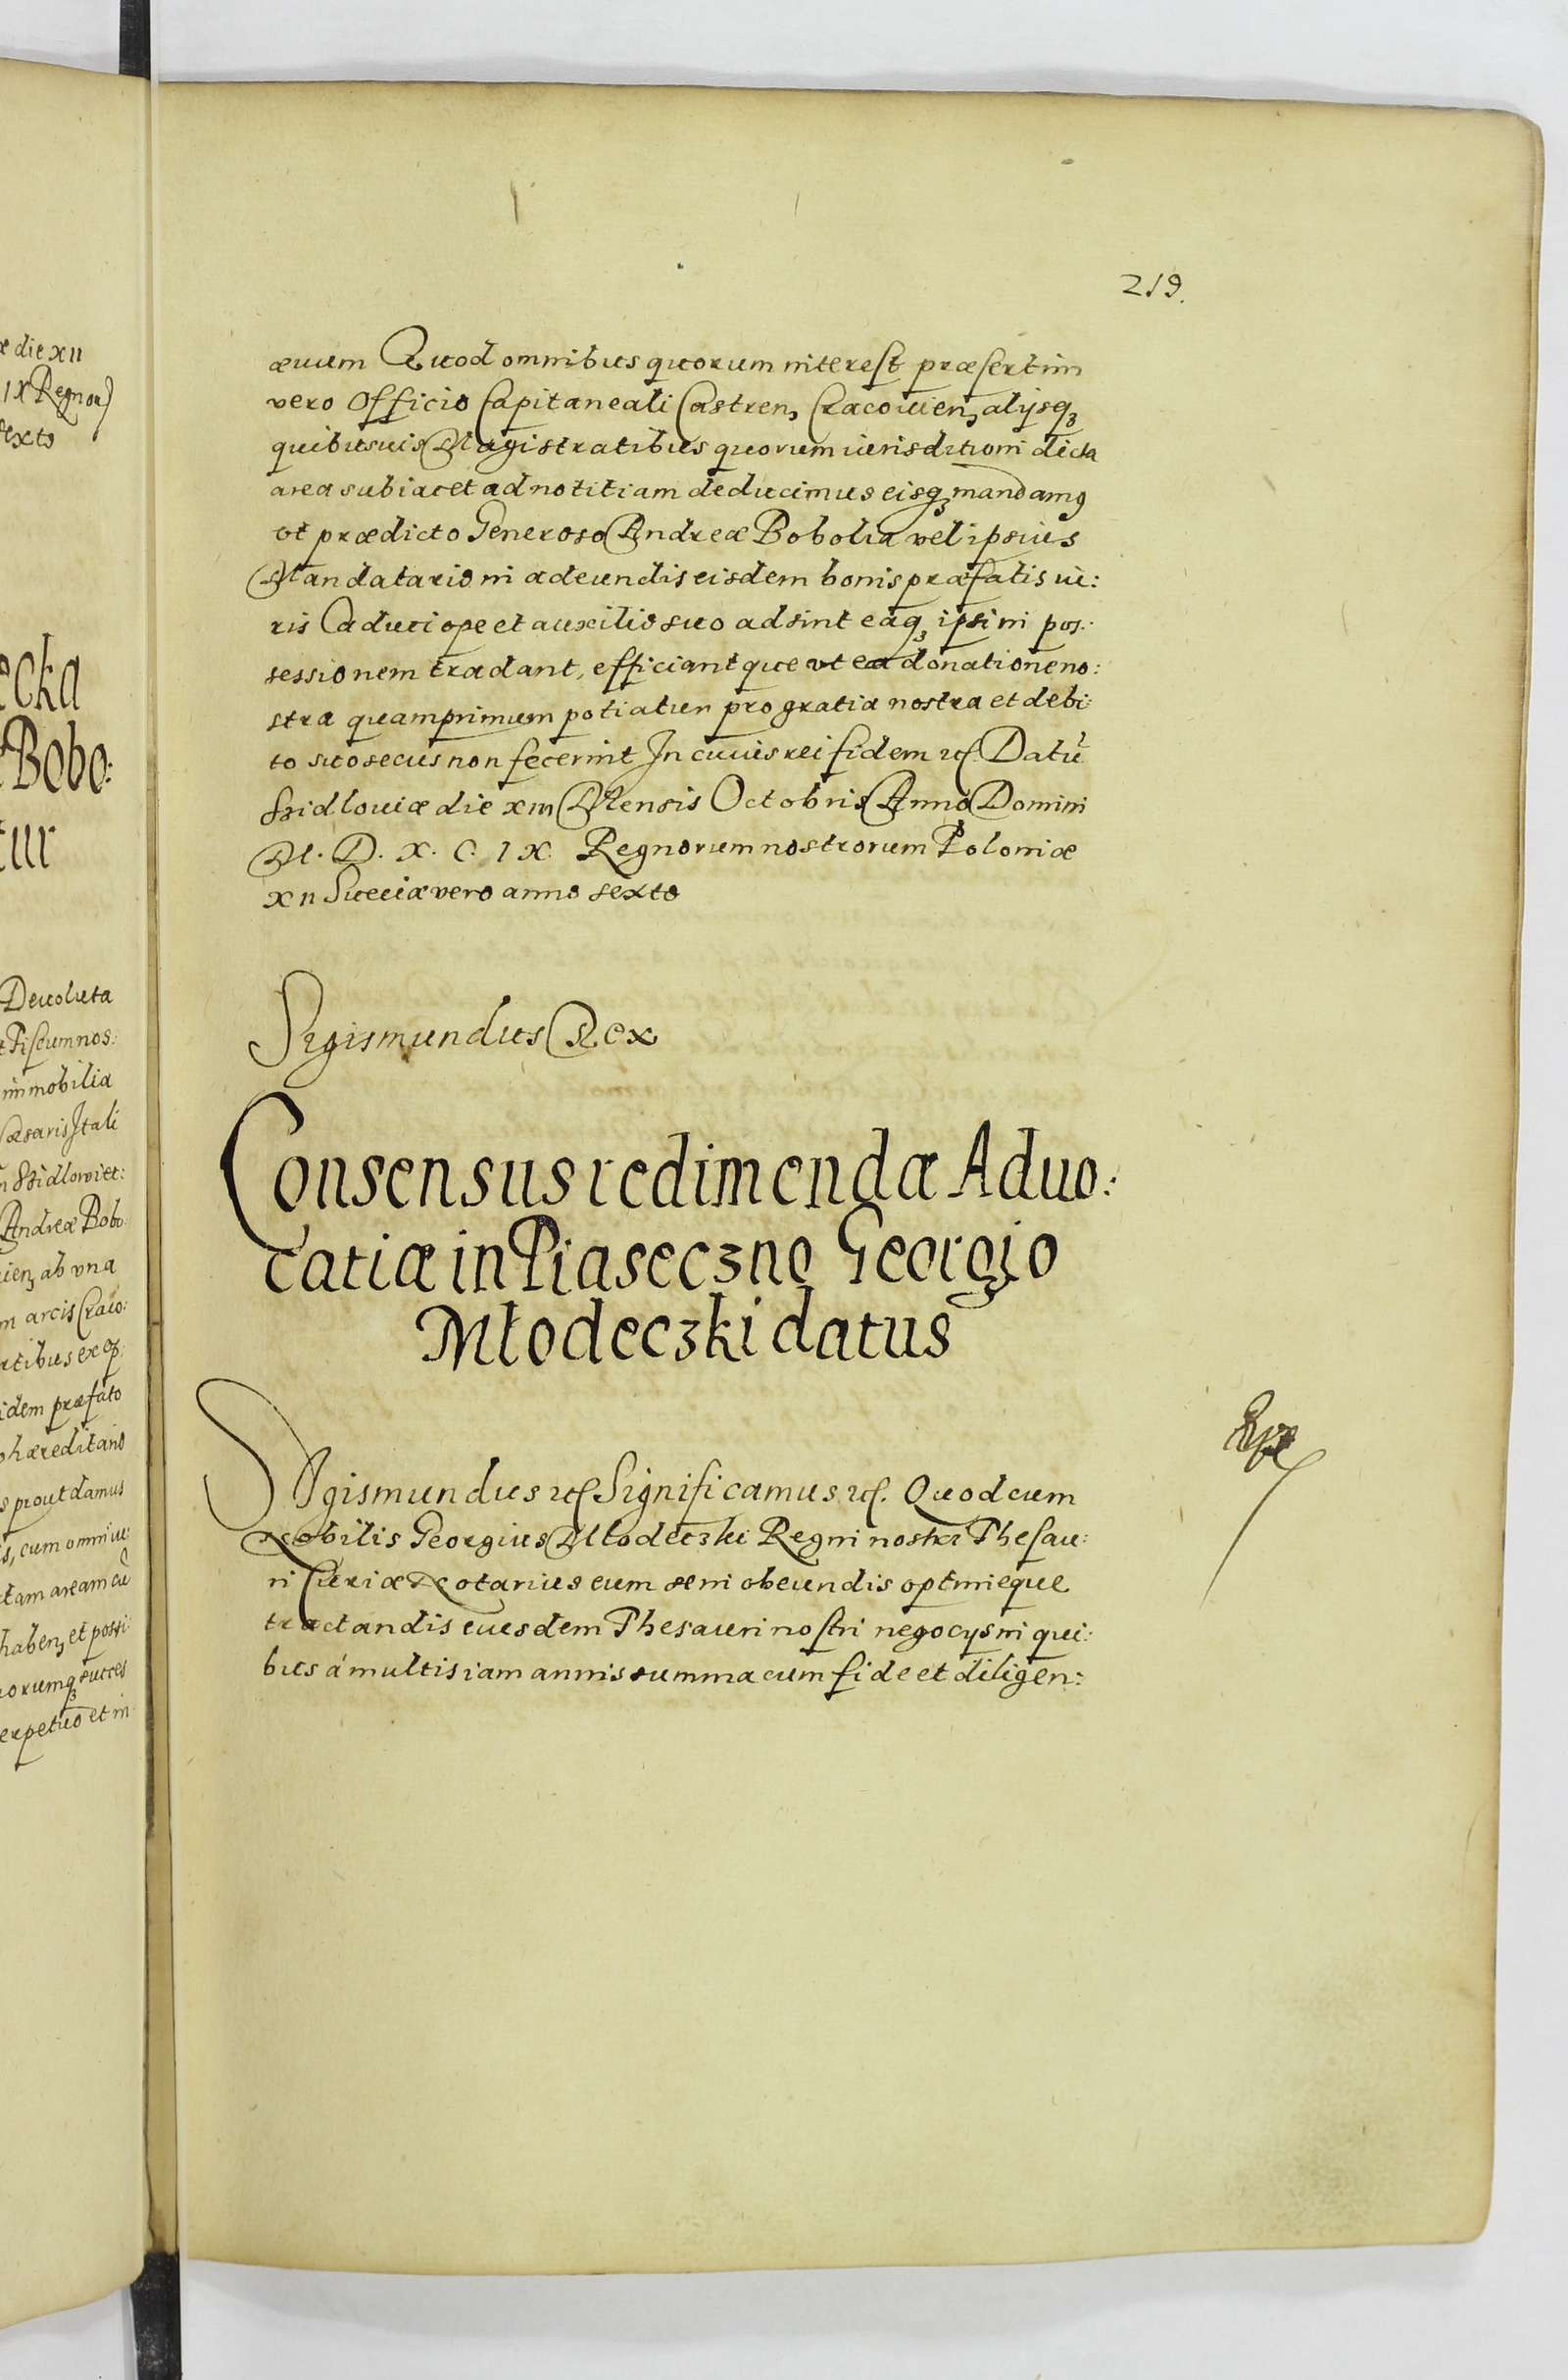 æ die xii
IX Regnor
sexto
ecka
Bobo:
tur
Deuoluta
Fiscum nos:
immobilia
Cæsaris Itali
Szidlowiet:
Andreæ Bobo:
ien, ab vna
m arcis Craco:
idem præfato
hæreditario
s prout damus
s, cum omni iu:
tam aream cũ
haben, et possi:
orumq, succes
erpetuo et in
219.
æuum Quod omnibus quorum interest præsertim
vero Officio Capitaneali Castren, Cracouien, alijsq,
quibusuis Magistratibus quorum iurisditioni dicta
area subiacet ad notitiam deducimus eisq, mandamus
vt prædicto Generoso Andreæ Bobolia vel ipsius
Mandatario in adeundis eisdem bonis præfatis iu:
ris Caduci ope et auxilio suo adsint eaq, ipsi in pos:
sessionem tradant, efficiantque vt ea donatione no:
stra quamprimum potiatur pro gratia nostra et debi:
to suo secus non fecerint In cuius rei fidem etc. Datũ
Szidlouiæ die xiii Mensis Octobris Anno Domini
M. D. X. C. IX. Regnorum nostrorum Poloniæ
xii Sueciæ vero anno sexto
Sigismundus Rex
Consensus redimendæ Aduo:
catiæ in Piaseczno Georgio
Młodeczki datus
Sigismundus etc. Significamus etc. Quod cum
Nobilis Georgius Młodeczki Regni nostri Thesau:
ri Curiæ Notarius eum se in obeundis optimeque
tractandis eiusdem Thesauri nostri negocys in qui:
bus á multis iam annis summa cum fide et diligen: